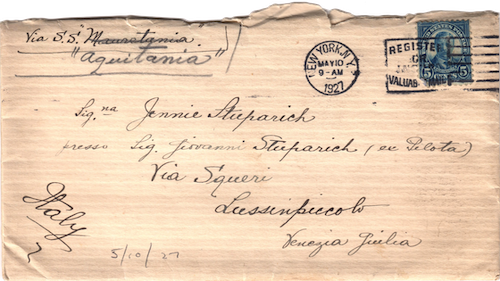 Via S.S. Mauretania
"Aquitania"
NEW YORK, N.Y.
MAY 10
9-AM
1927
REGISTER
OR
VALUABLE
5 5
Sig.na Jennie Stuparich
presso Sig. Giovanni Stuparich (ex Pilota)
Via Squeri
Lussinpiccolo
Venezia Giulia
Italy
5/10/27